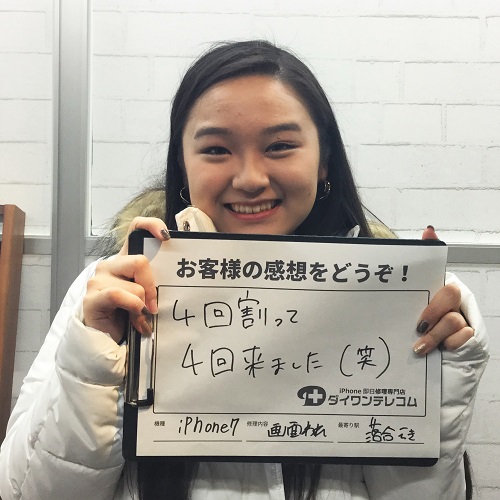 お客様の感想をどうぞ！
4回割って
4回来ました（笑）
iPhone 即日修理専門店
ダイワンテレコム
機種 iPhone7 修理内容 画面われ 最寄り駅 落合